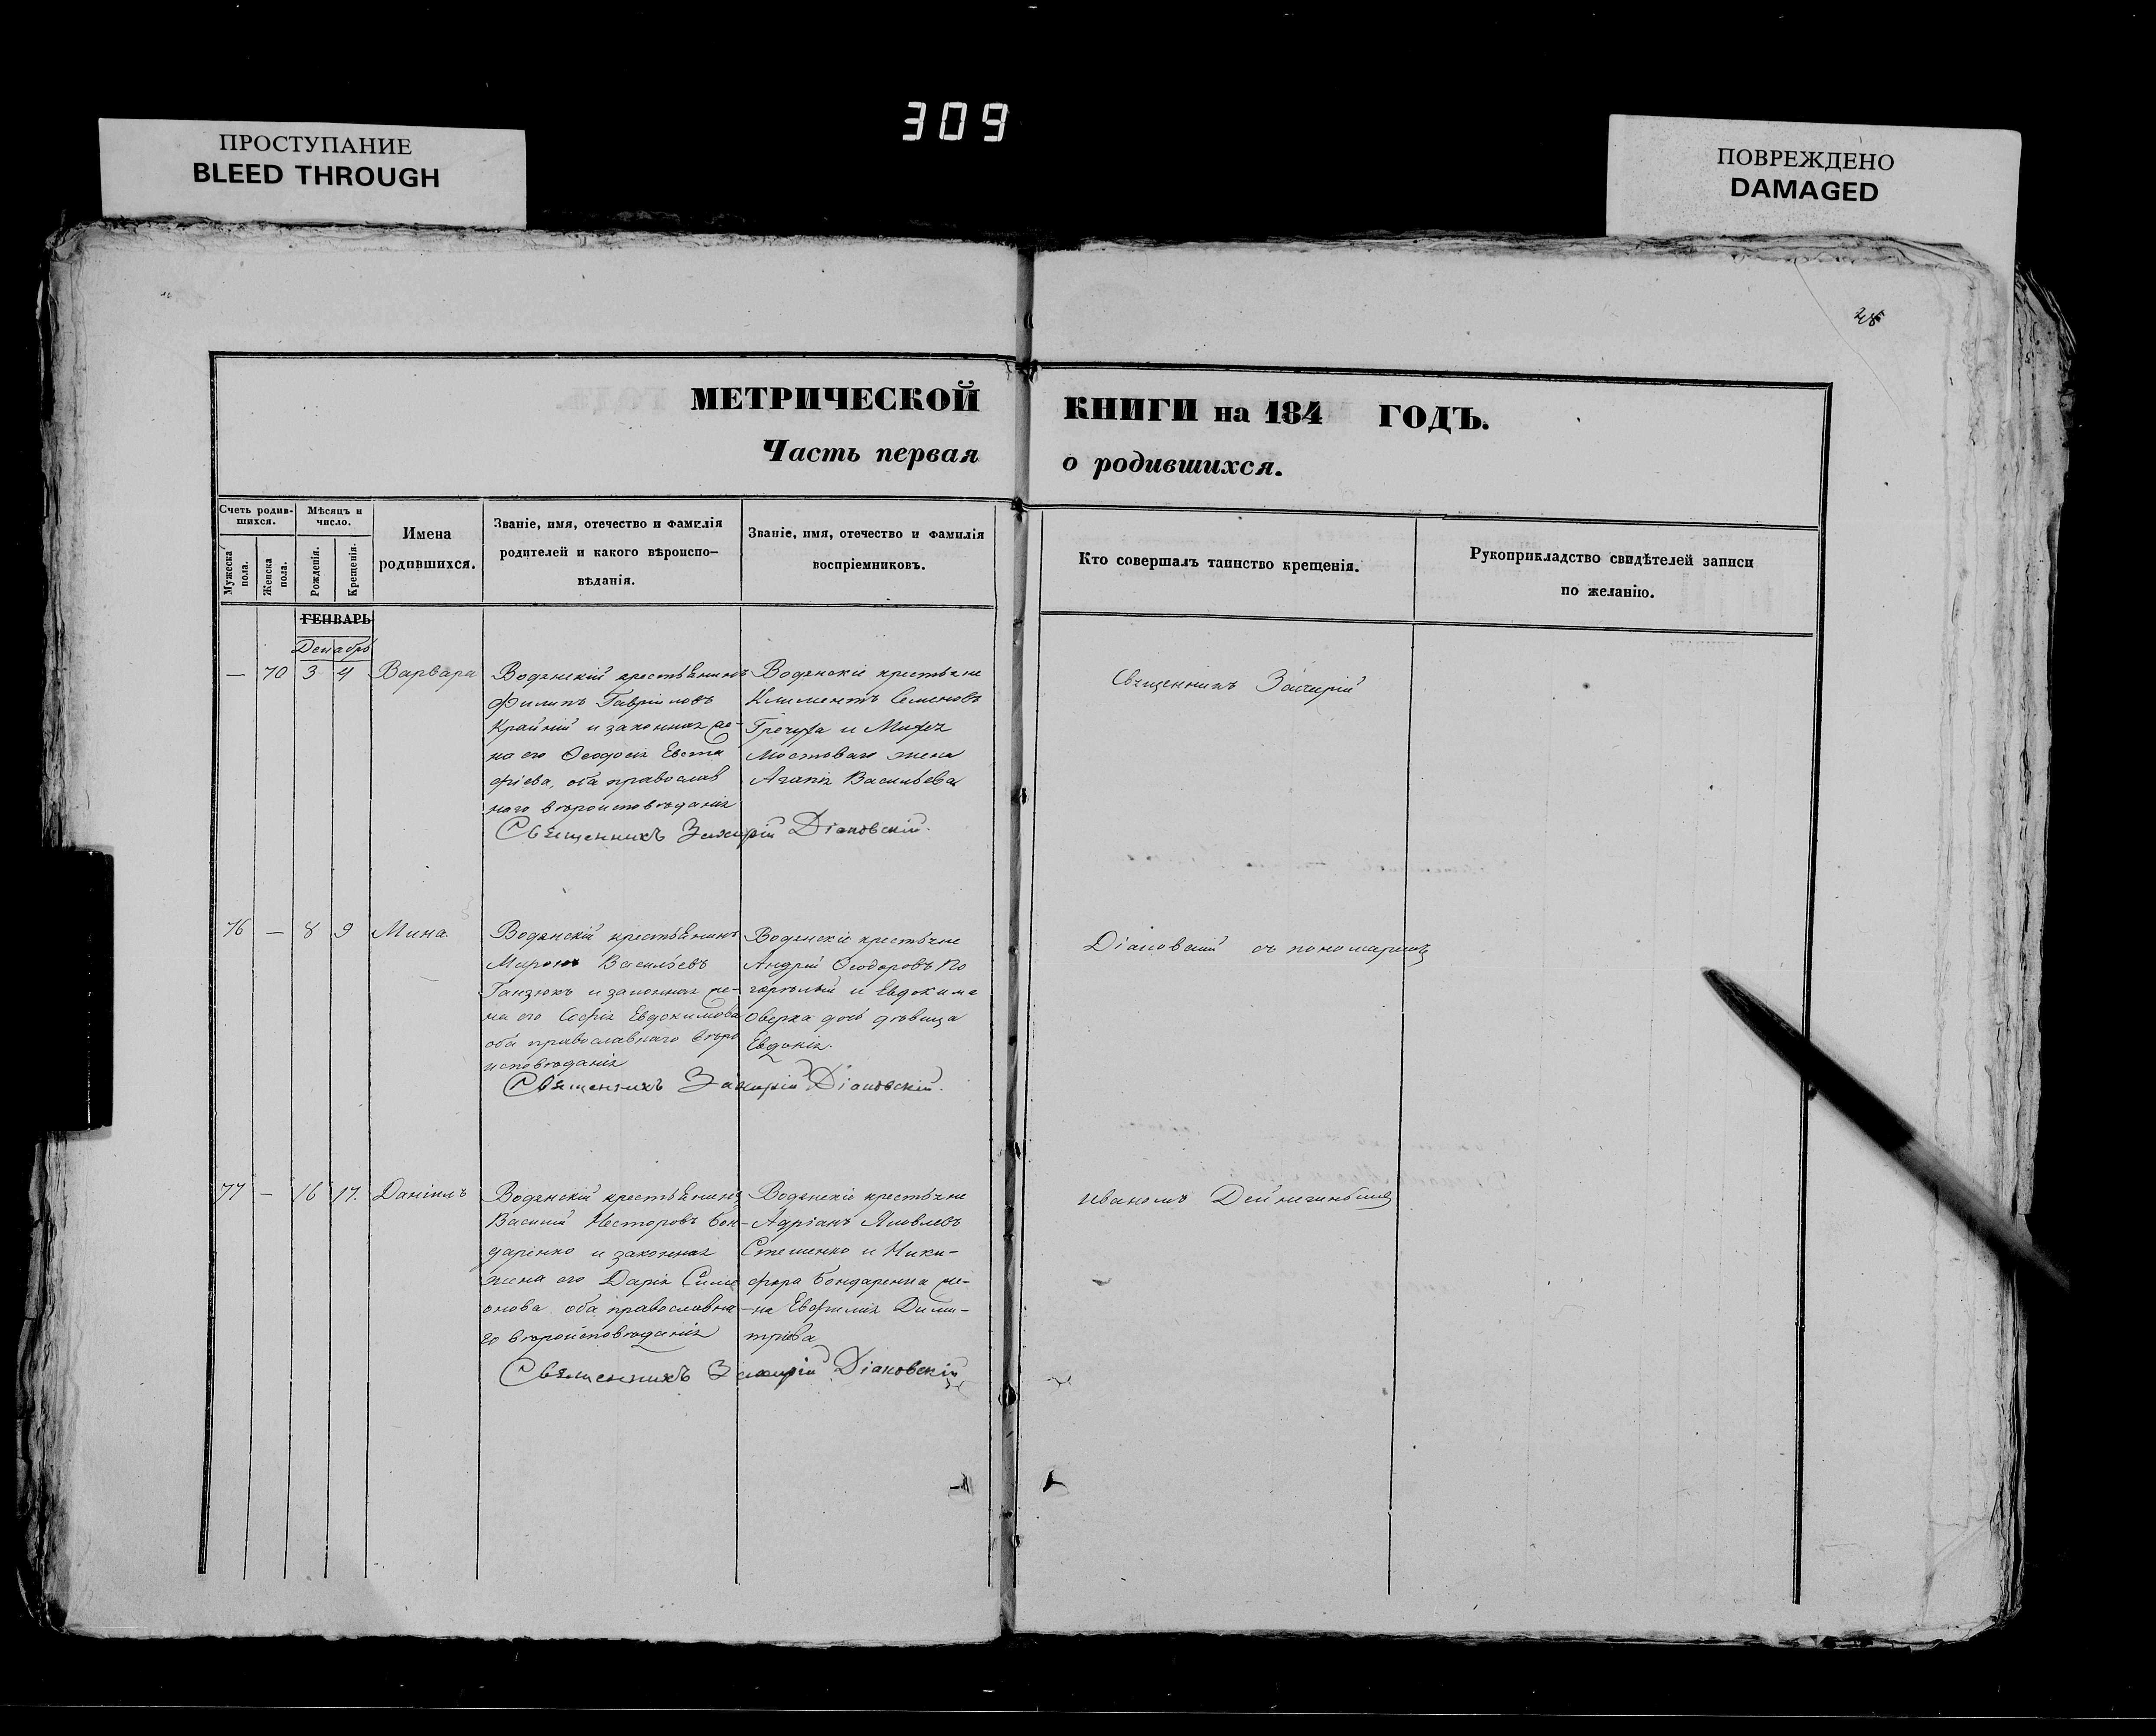 309
ПРОСТУПАНИЕ
BLEED THROUGH
ПОВРЕЖДЕНО
DAMAGED
МЕТРИЧЕСКОЙ КНИГИ на 184 ГОДЪ.
Часть первая о родившихся.
Счетъ родив-
шихся.
Мужеска
пола.
Женска
пола.
Мѣсяцъ и
число.
Рожденія.
Крещенія.
Имена
родившихся.
Званіе, имя, отечество и фамилія
родителей и какого вѣроиспо-
вѣданія.
Званіе, имя, отечество и фамилія
воспріемниковъ.
Кто совершалъ таинство крещенія.
Рукоприкладство свидѣтелей записи
по желанію.
ГЕНВАРЬ
Декабрь
— 70 3 4 Варвара
Водянскій крестьянинъ
Филипъ Гавріиловъ
Крайній и законная же-
на его Ѳеодосія Евста
фіева, оба православ
наго вѣроисповѣданія
Водянскіе крестьяне
Климентъ Семеновъ
Гречуха и Михея
Мостоваго жена
Агапія Васильева
Священникъ Захарій Діаковскій.
Священникъ Захарій
76 — 8 9 Мина.
Водянскій крестьянинъ
Миронъ Васильевъ
Ганзюкъ и законная же-
на его Софія Евдокимова
оба православнаго вѣро
исповѣданія
Водянскіе крестьяне
Андрій Ѳеодоровъ По
горѣлый и Евдокима
Оверка дочь дѣвица
Евдокія.
Священникъ Захарій Діаковскій.
Діаковскій съ пономаремъ
77 — 16 17. Даніилъ
Водянскій крестьянинъ
Василій Несторовъ Бон-
даренко и законная
жена его Дарія Симе
онова оба православна-
го вѣроисповѣданія
Водянскіе крестьяне
Адріанъ Яковлевъ
Стешенко и Ники-
фора Бондаренка же-
на Евфимія Дими-
тріева
Священникъ Захарій Діаковскій
Иваномъ